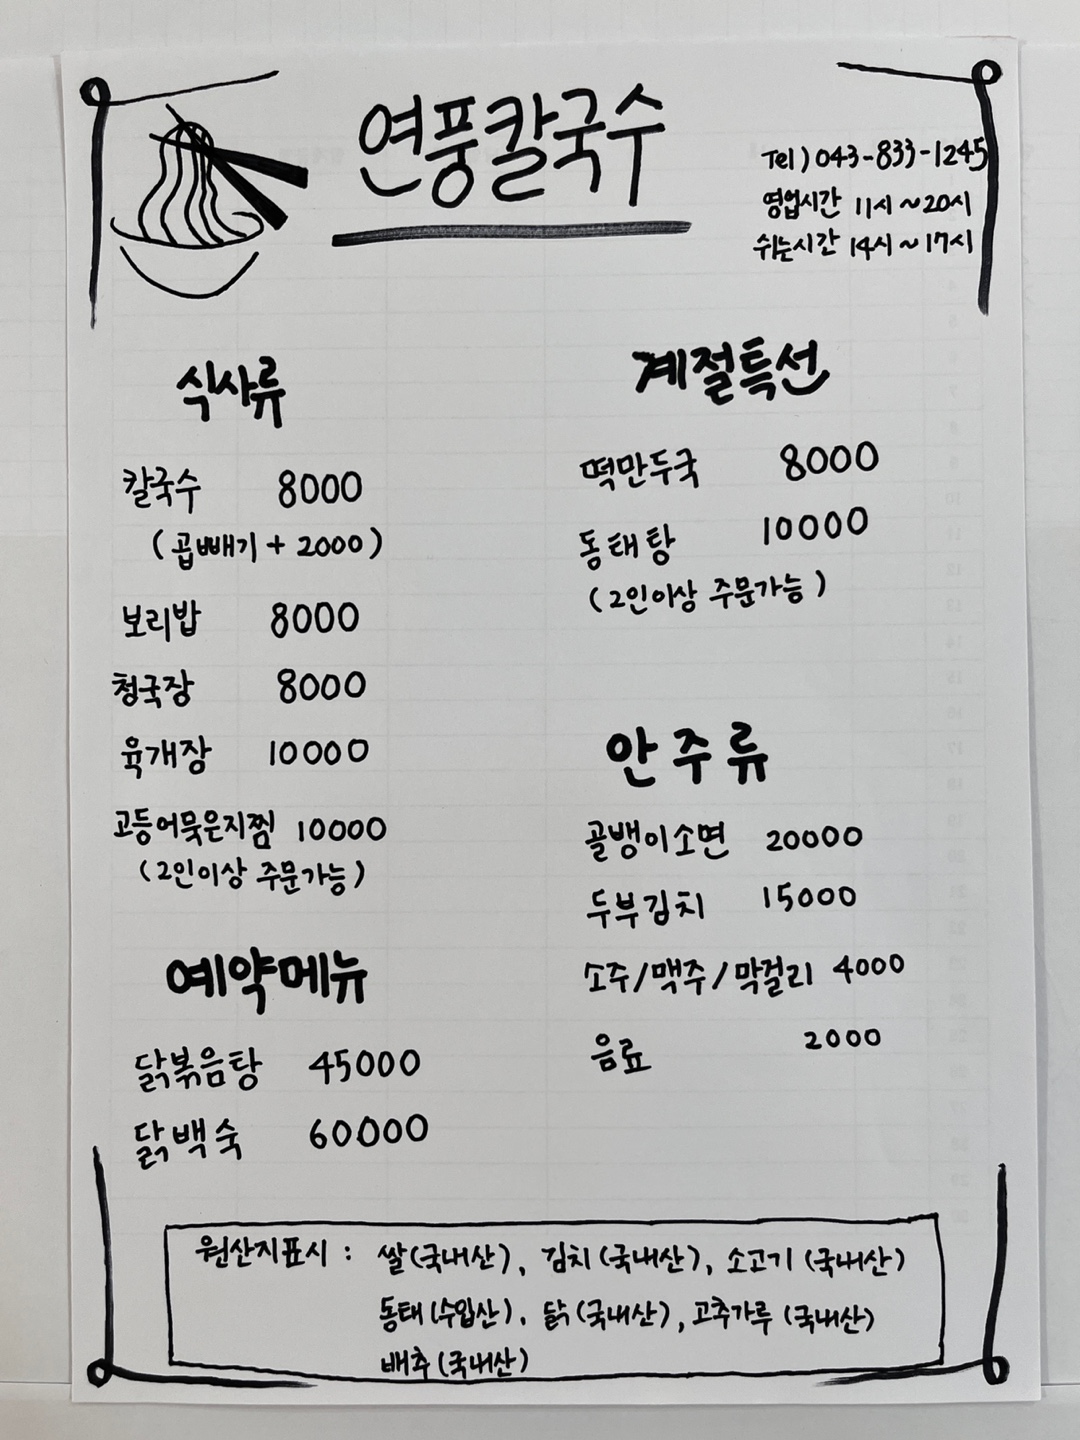 연풍칼국수
Tel) 043-833-1245
영업시간 11시~20시
쉬는시간 14시~17시
식사류
칼국수 8000
(곱빼기 + 2000)
보리밥 8000
청국장 8000
육개장 10000
고등어묵은지찜 10000
(2인이상 주문가능)
예약메뉴
닭볶음탕 45000
닭백숙 60000
계절특선
떡만두국 8000
동태탕 10000
(2인이상 주문가능)
안주류
골뱅이소면 20000
두부김치 15000
소주/맥주/막걸리 4000
음료 2000
원산지표시 : 쌀(국내산), 김치(국내산), 소고기(국내산)
동태(수입산), 닭(국내산), 고추가루(국내산)
배추(국내산)